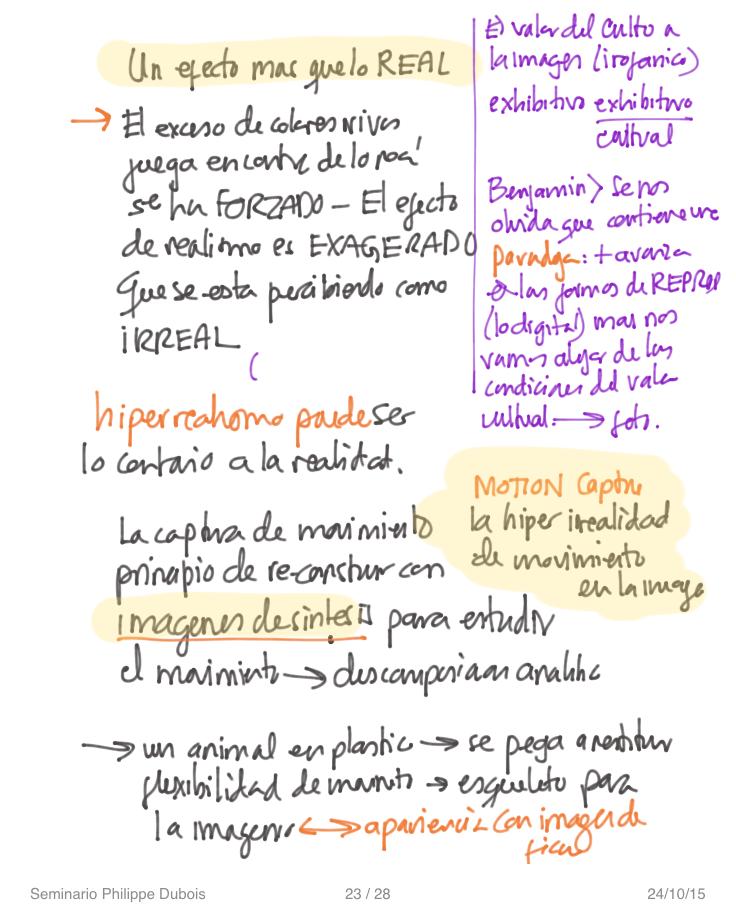 Un efecto mas que lo REAL
→ El exceso de colores vivos
juega en contra de lo
se ha FORZADO – El efecto
de realismo es EXAGERADO
que se esta percibiendo como
iRREAL
hiperrealismo puede ser
lo contario a la realitat.
La captura de movimiento
principio de re-construir con
imagenes de sintes para estudiar
el movimiento → descomposicion analitic
→ un animal en plastic → se pega a restituir
flexibilidad de → esqueleto para
la imagen ↔ apariencia con imagen de
El valor del culto a
la imagen
exhibitivo exhibitivo
cultual
Benjamin > Se nos
olvida que contiene una
: + avanza
las formas de
(lo digital) mas nos
vamos alejar de las
condiciones del valor
cultual. → foto.
MOTION Captu
la hiper irrealidad
de movimiento
en la image
Seminario Philippe Dubois
23 / 28
24/10/15